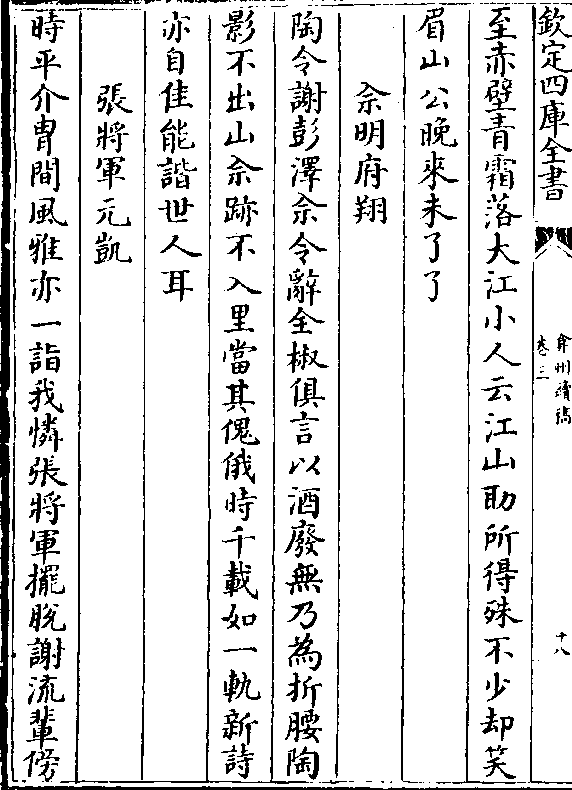 欽定四庫全書
弇州續稿
卷三
十八
至赤壁青霜落大江小人云江山助所得殊不少却笑
眉山公晚來未了了
余明府翔
陶令謝彭澤余令辭全椒俱言以酒廢無乃為折腰陶
影不出山余跡不入里當其傀俄時千載如一軌新詩
亦自佳能諧世人耳
張將軍元凱
時平介胄間風雅亦一詣我憐張將軍擺脫謝流輩傍